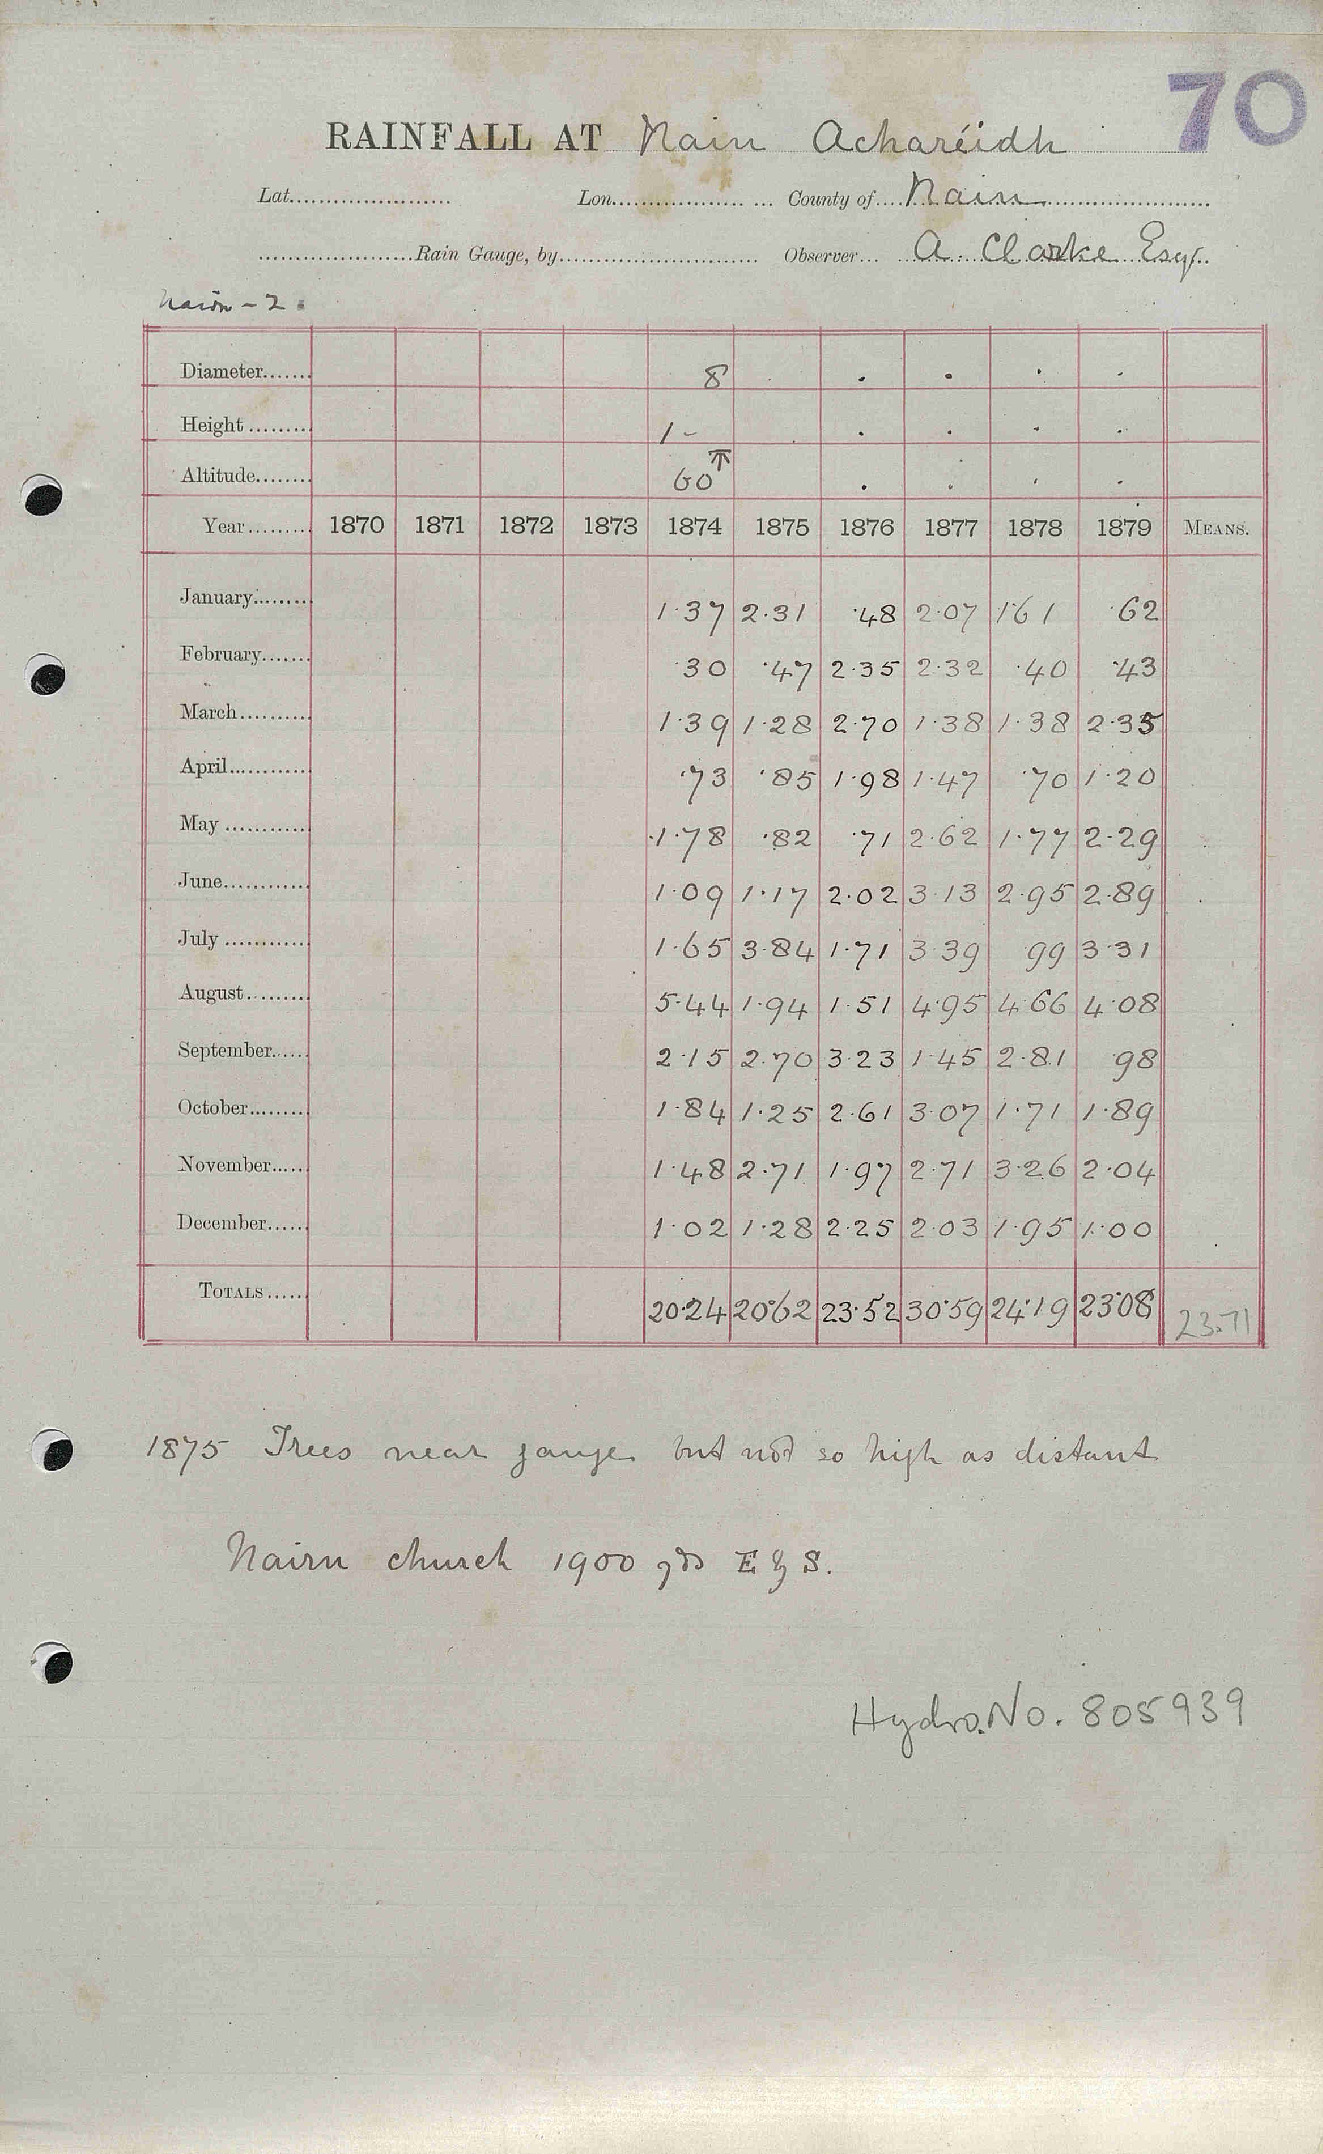 70
RAINFALL AT Nairn Achareidh
Lat. Lon. County of Nairn
Rain Gauge, by Observer A. Clarke Esqr.
Nairn - 2
Diameter 8 . . . .
Height 1- . . . .
Altitude 60 T . . . .
Year 1870 1871 1872 1873 1874 1875 1876 1877 1878 1879 MEANS.
January 1.37 2.31 .48 2.07 1.61 .62
February .30 .47 2.35 2.32 .40 .43
March 1.39 1.28 2.70 1.38 1.38 2.35
April .73 .85 1.98 1.47 .70 1.20
May 1.78 .82 .71 2.62 1.77 2.29
June 1.09 1.17 2.02 3.13 2.95 2.89
July 1.65 3.84 1.71 3.39 .99 3.31
August 5.44 1.94 1.51 4.95 4.66 4.08
September 2.15 2.70 3.23 1.45 2.81 .98
October 1.84 1.25 2.61 3.07 1.71 1.89
November 1.48 2.71 1.97 2.71 3.26 2.04
December 1.02 1.28 2.25 2.03 1.95 1.00
TOTALS 20.24 20.62 23.52 30.59 24.19 23.08 23.71
1875 Trees near gauge but not so high as distant
Nairn church 1900 yds E by S.
Hydro. No. 805939